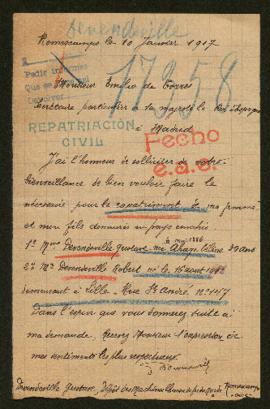 Devendville
Romescamps le 10 Janvier 1917
17358
Pedir informes
Que se
Monsieur Emilio de Torres
Secrétaire particulier de sa majesté le Roi d'Espagne
à Madrid
REPATRIACIÓN
CIVIL
Fecho
e.a.e.
J'ai l'honneur de solliciter de votre
bienveillance de bien vouloir faire le
nécessaire pour le rapatriement de ma femme
et mon fils demeurés en pays envahis
1º Mme Devendville Gustave née
29 ans
2º Mr Devendville Robert né le 15 aout
demeurant à Lille Rue St André Nº 117
Dans l'espoir que vous donnerez suite à
ma demande. Recevez Monsieur l'expression de
mes sentiments les plus respectueux.
Devendville Gustave, Dépôt des Machines
Romescamps
Oise